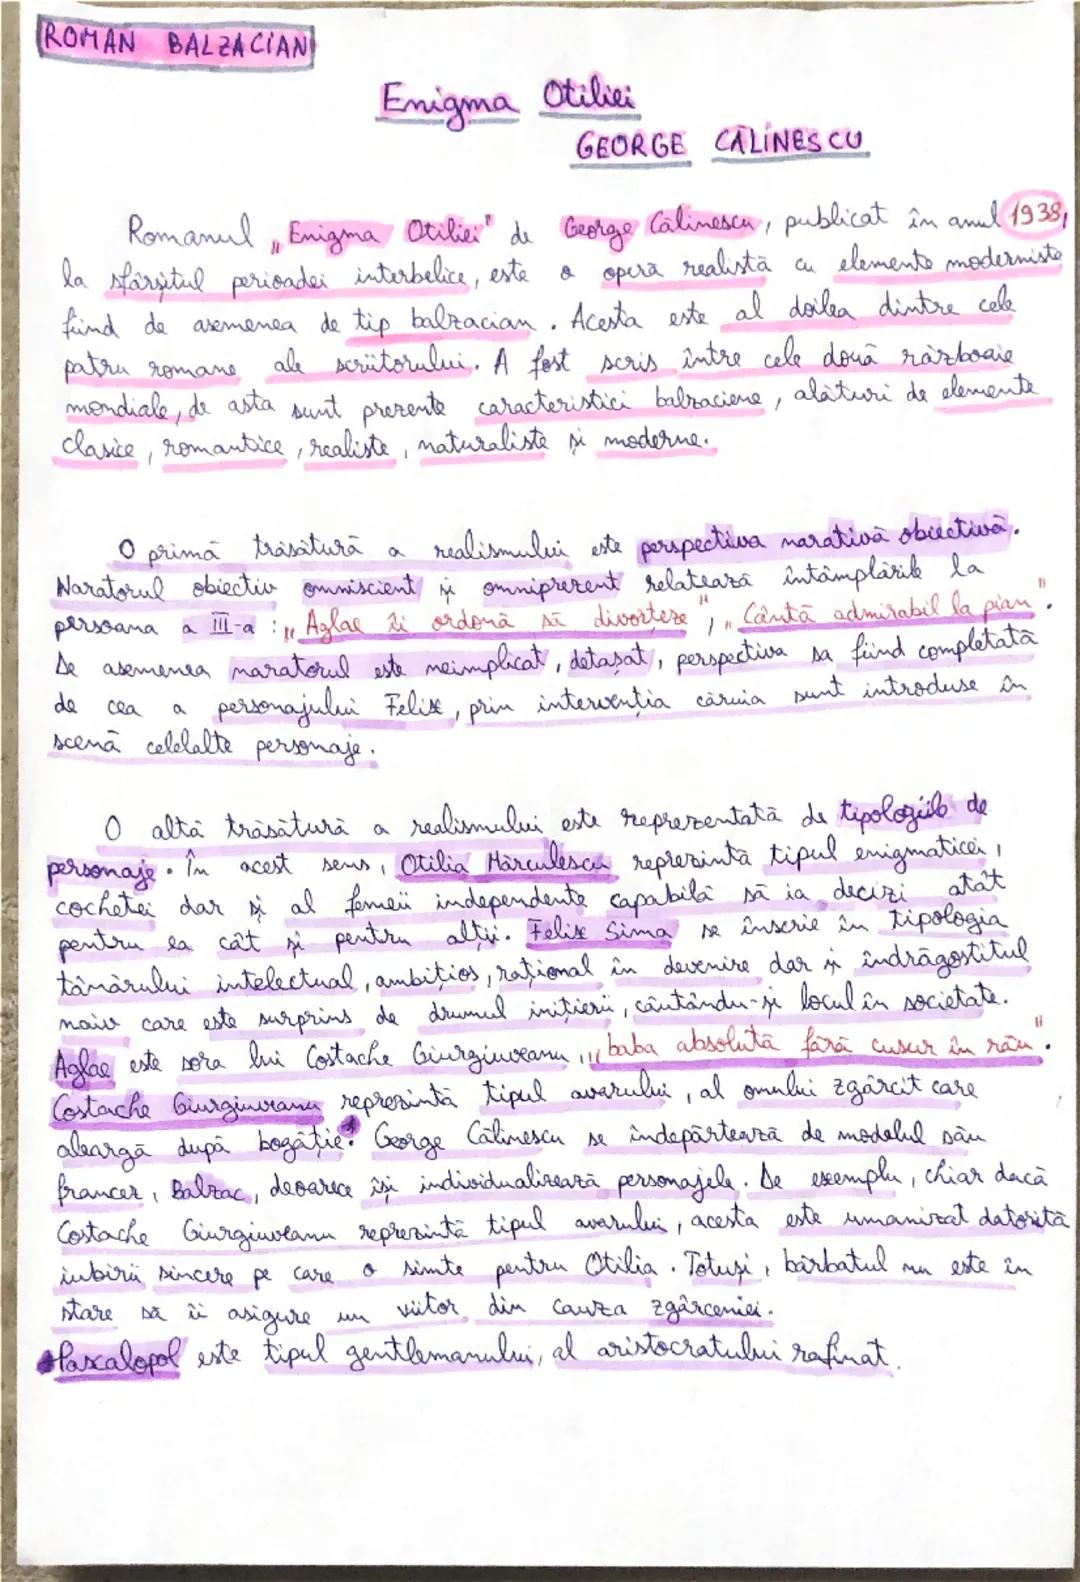 ROMAN BALZACIAN
Enigma Otiliei
GEORGE CĂLINESCU
Romanul „Enigma Otiliei" de George Călinescu, publicat în anul 1938,
la sfârșitul perioadei interbelice, este o operă realistă cu elemente moderniste
fiind de asemenea de tip balzacian. Acesta este al doilea dintre cele
patru romane ale scriitorului. A fost scris între cele două războaie
mondiale, de asta sunt prezente caracteristici balzaciene, alături de elemente
clasice, romantice, realiste, naturaliste și moderne.
O primă trăsătură a realismului este perspectiva narativă obiectivă.
Naratorul obiectiv omniscient și omniprezent relatează întâmplările la
persoana a III-a: „Aglae îi ordonă să divorțeze", „Cântă admirabil la pian".
De asemenea naratorul este neimplicat, detașat, perspectiva sa fiind completată
de cea a personajului Felix, prin intervenția căruia sunt introduse în
scenă celelalte personaje.
O altă trăsătură a realismului este reprezentată de tipologiile de
personaje. În acest sens, Otilia Mărculescu reprezintă tipul enigmaticei,
cochetei dar și al femeii independente capabilă să ia decizi atât
pentru ea cât și pentru alții. Felix Sima se înscrie în tipologia
tânărului intelectual, ambițios, rațional în devenire dar și îndrăgostitul
naiv care este surprins de drumul inițierii, căutându-și locul în societate.
Aglae este sora lui Costache Giurgiuveanu, „baba absolută fără cusur în rău".
Costache Giurgiuveanu reprezintă tipul avarului, al omului zgârcit care
aleargă după bogăție. George Călinescu se îndepărtează de modelul său
francez, Balzac, deoarece își individualizează personajele. De exemplu, chiar dacă
Costache Giurgiuveanu reprezintă tipul avarului, acesta este umanizat datorită
iubirii sincere pe care o simte pentru Otilia. Totuși, bărbatul nu este în
stare să îi asigure un viitor din cauza zgârceniei.
Pascalopol este tipul gentlemanului, al aristocratului rafinat.